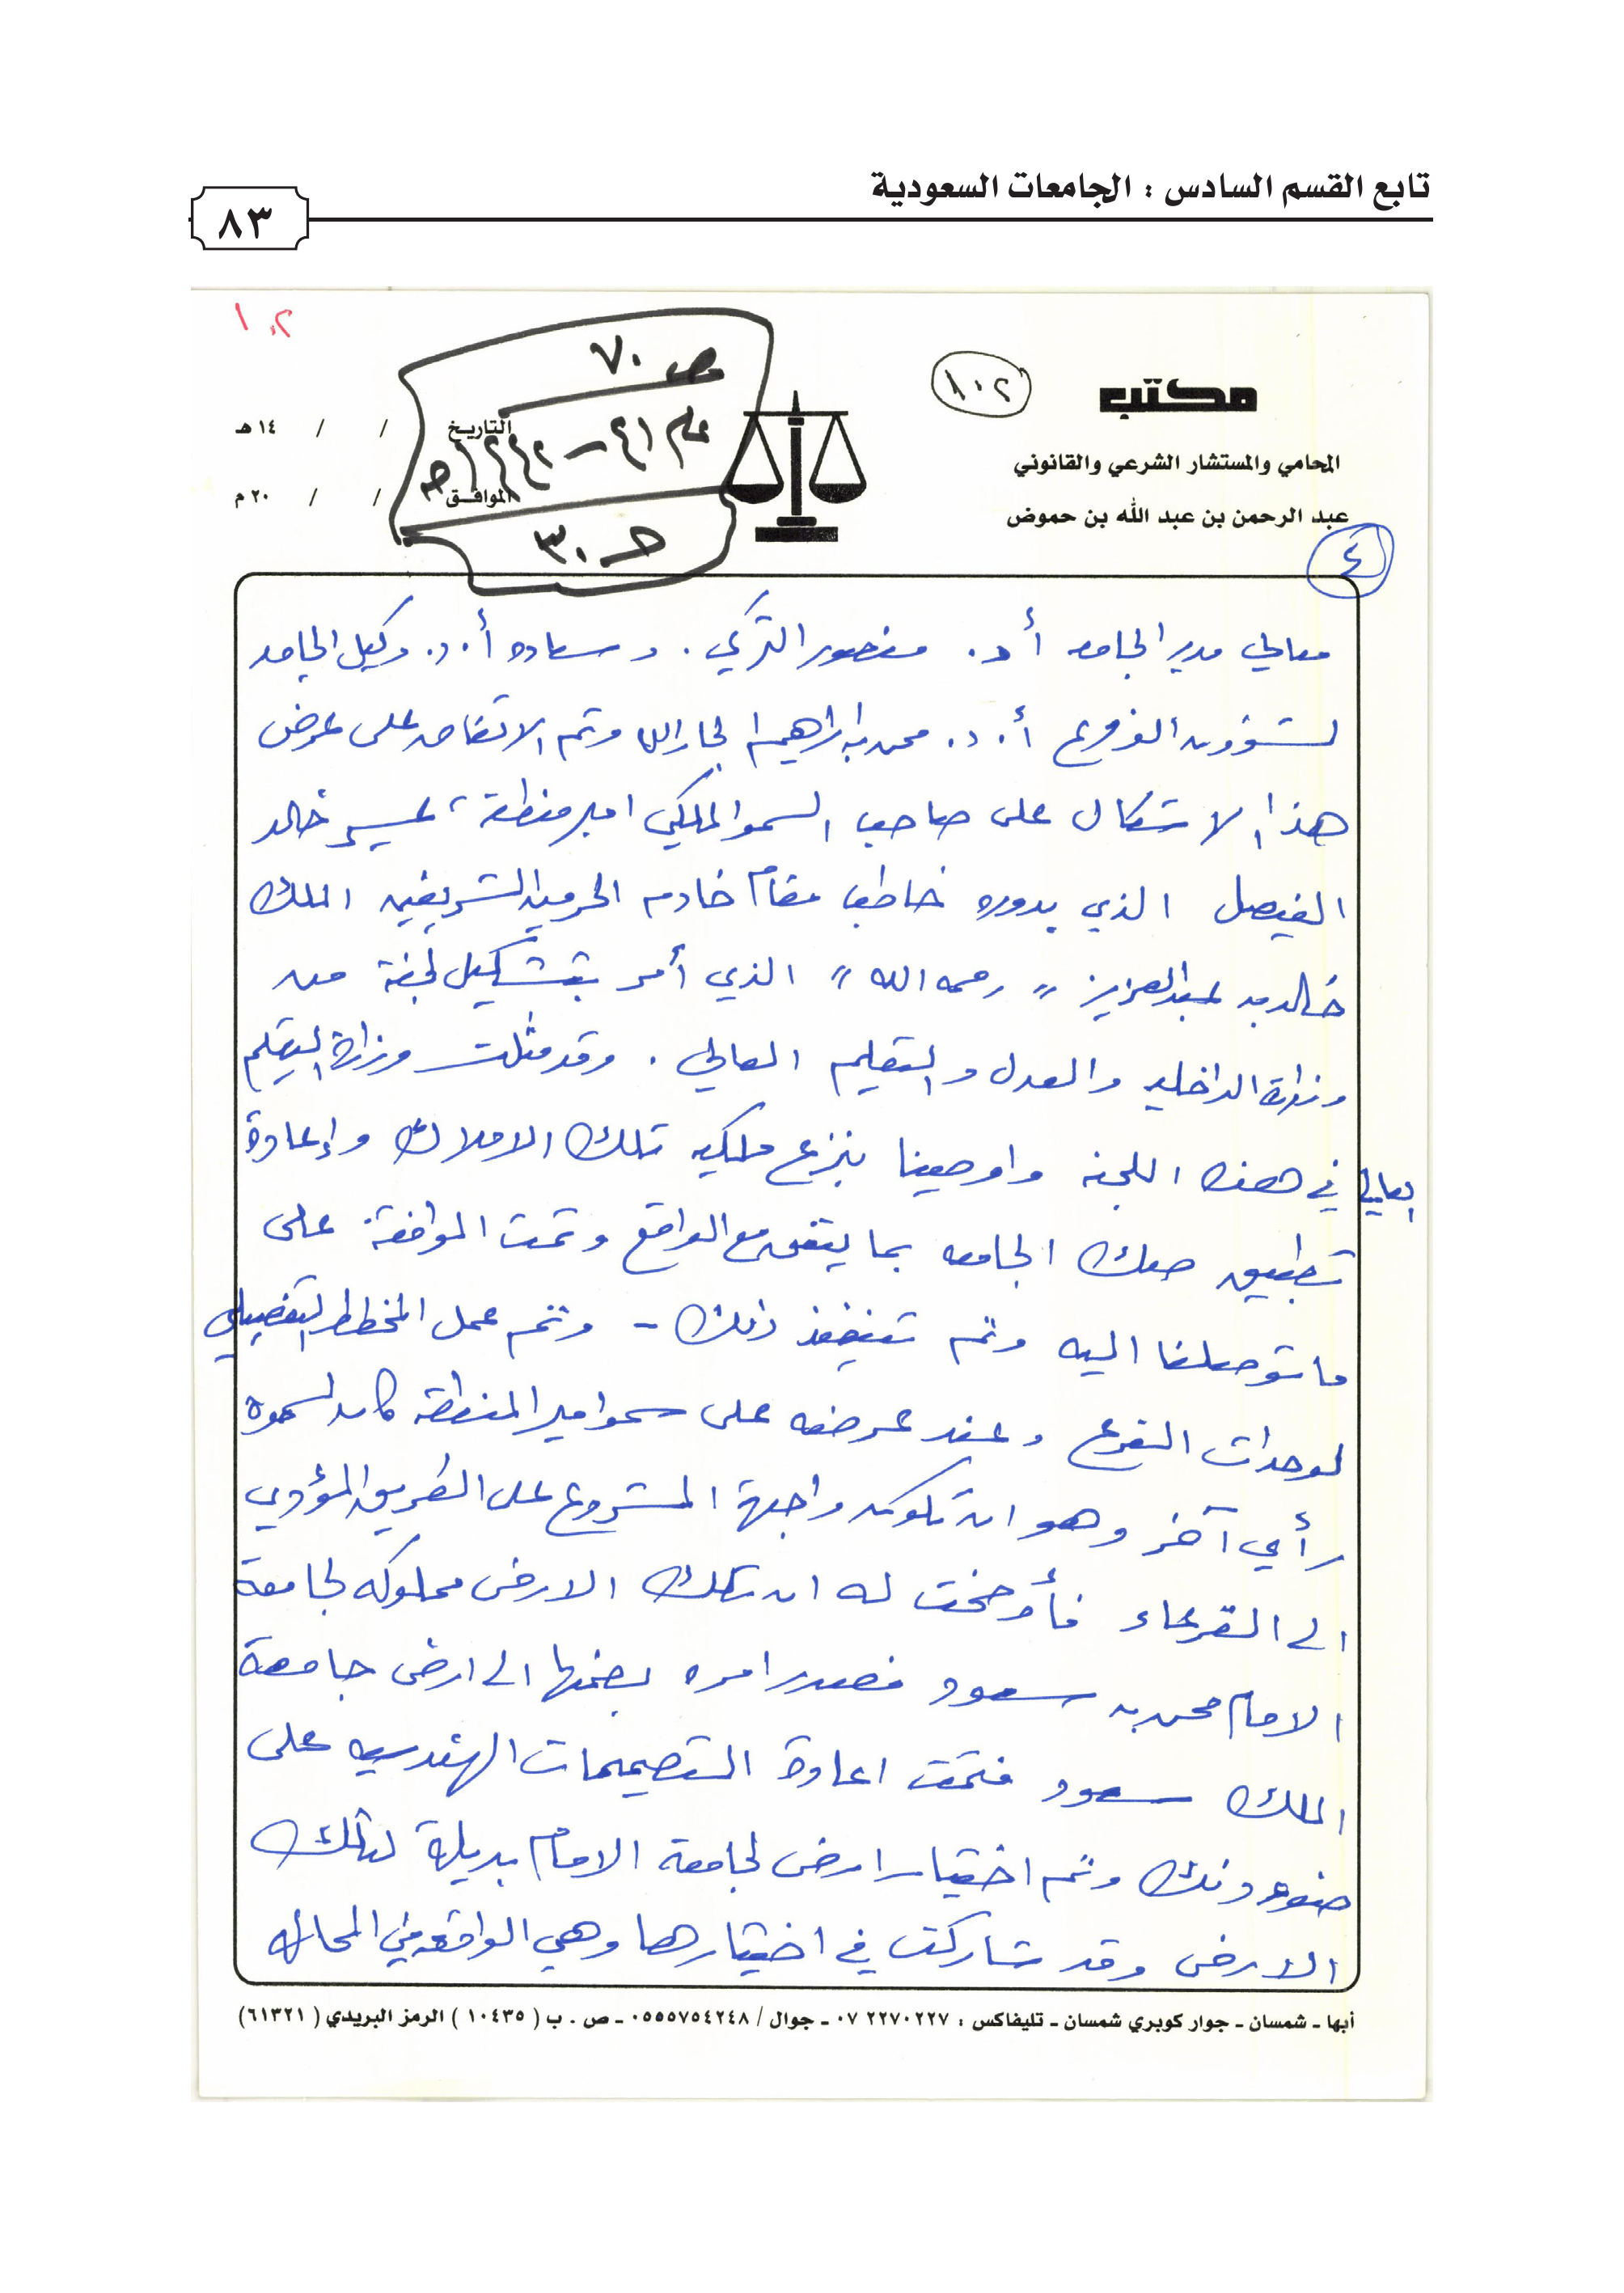 تابع القسم السادس : الجامعات السعودية
٨٣
١٠٢
ص ٧٠
عام ٤١ – ١٤٤٢هـ
حـ ٣٠
١٠٢
مكتب
المحامي والمستشار الشرعي والقانوني
عبد الرحمن بن عبد الله بن حموض
التاريخ / / ١٤هـ
الموافق / / ٢٠م
٤
معالي مدير الجامعه أ.د. منصور التركي . و سعاده أ.د. وكيل الجامعه
لشؤون الفروع أ.د. محمد بن ابراهيم الجارالله وتم الاتفاق على عرض
هذا الاشكال على صاحب السمو الملكي امير منطقة عسير خالد
الفيصل الذي بدوره خاطب مقام خادم الحرمين الشريفين الملك
خالد بن عبدالعزيز " رحمه الله " الذي أمر بتشكيل لجنة من
وزارة الداخليه والعدل والتعليم العالي . وقد مثلت وزارة التعليم
العالي في هذه اللجنه واوصينا بنزع ملكيه تلك الاملاك وإعادة
تطبيق صك الجامعه بما يتفق مع الواقع وتمت الموافقة على
ما توصلنا اليه وتم تنفيذ ذلك - وتم عمل المخطط التفصيلي
لوحدات الفرع وعند عرضه على سمو امير المنطقه كان لسموه
رأي آخر وهو ان تكون واجهة المشروع على الطريق المؤدي
الى القرعاء فأوضحت له ان تلك الارض مملوكه لجامعة
الامام محمد بن سعود فصدر امره بضمها الى ارض جامعة
الملك سعود فتمت اعادة التصميمات الهندسيه على
ضوء ذلك وتم اختيار ارض لجامعة الامام بديلة لتلك
الارض وقد شاركت في اختيارها وهي الواقعه في المحاله
أبها ـ شمسان ـ جوار كوبري شمسان ـ تليفاكس : ٢٢٧٠٢٢٧ ٠٧ ـ جوال / ٠٥٥٥٧٥٤٢٤٨ ـ ص . ب ( ١٠٤٣٥ ) الرمز البريدي ( ٦١٣٢١ )